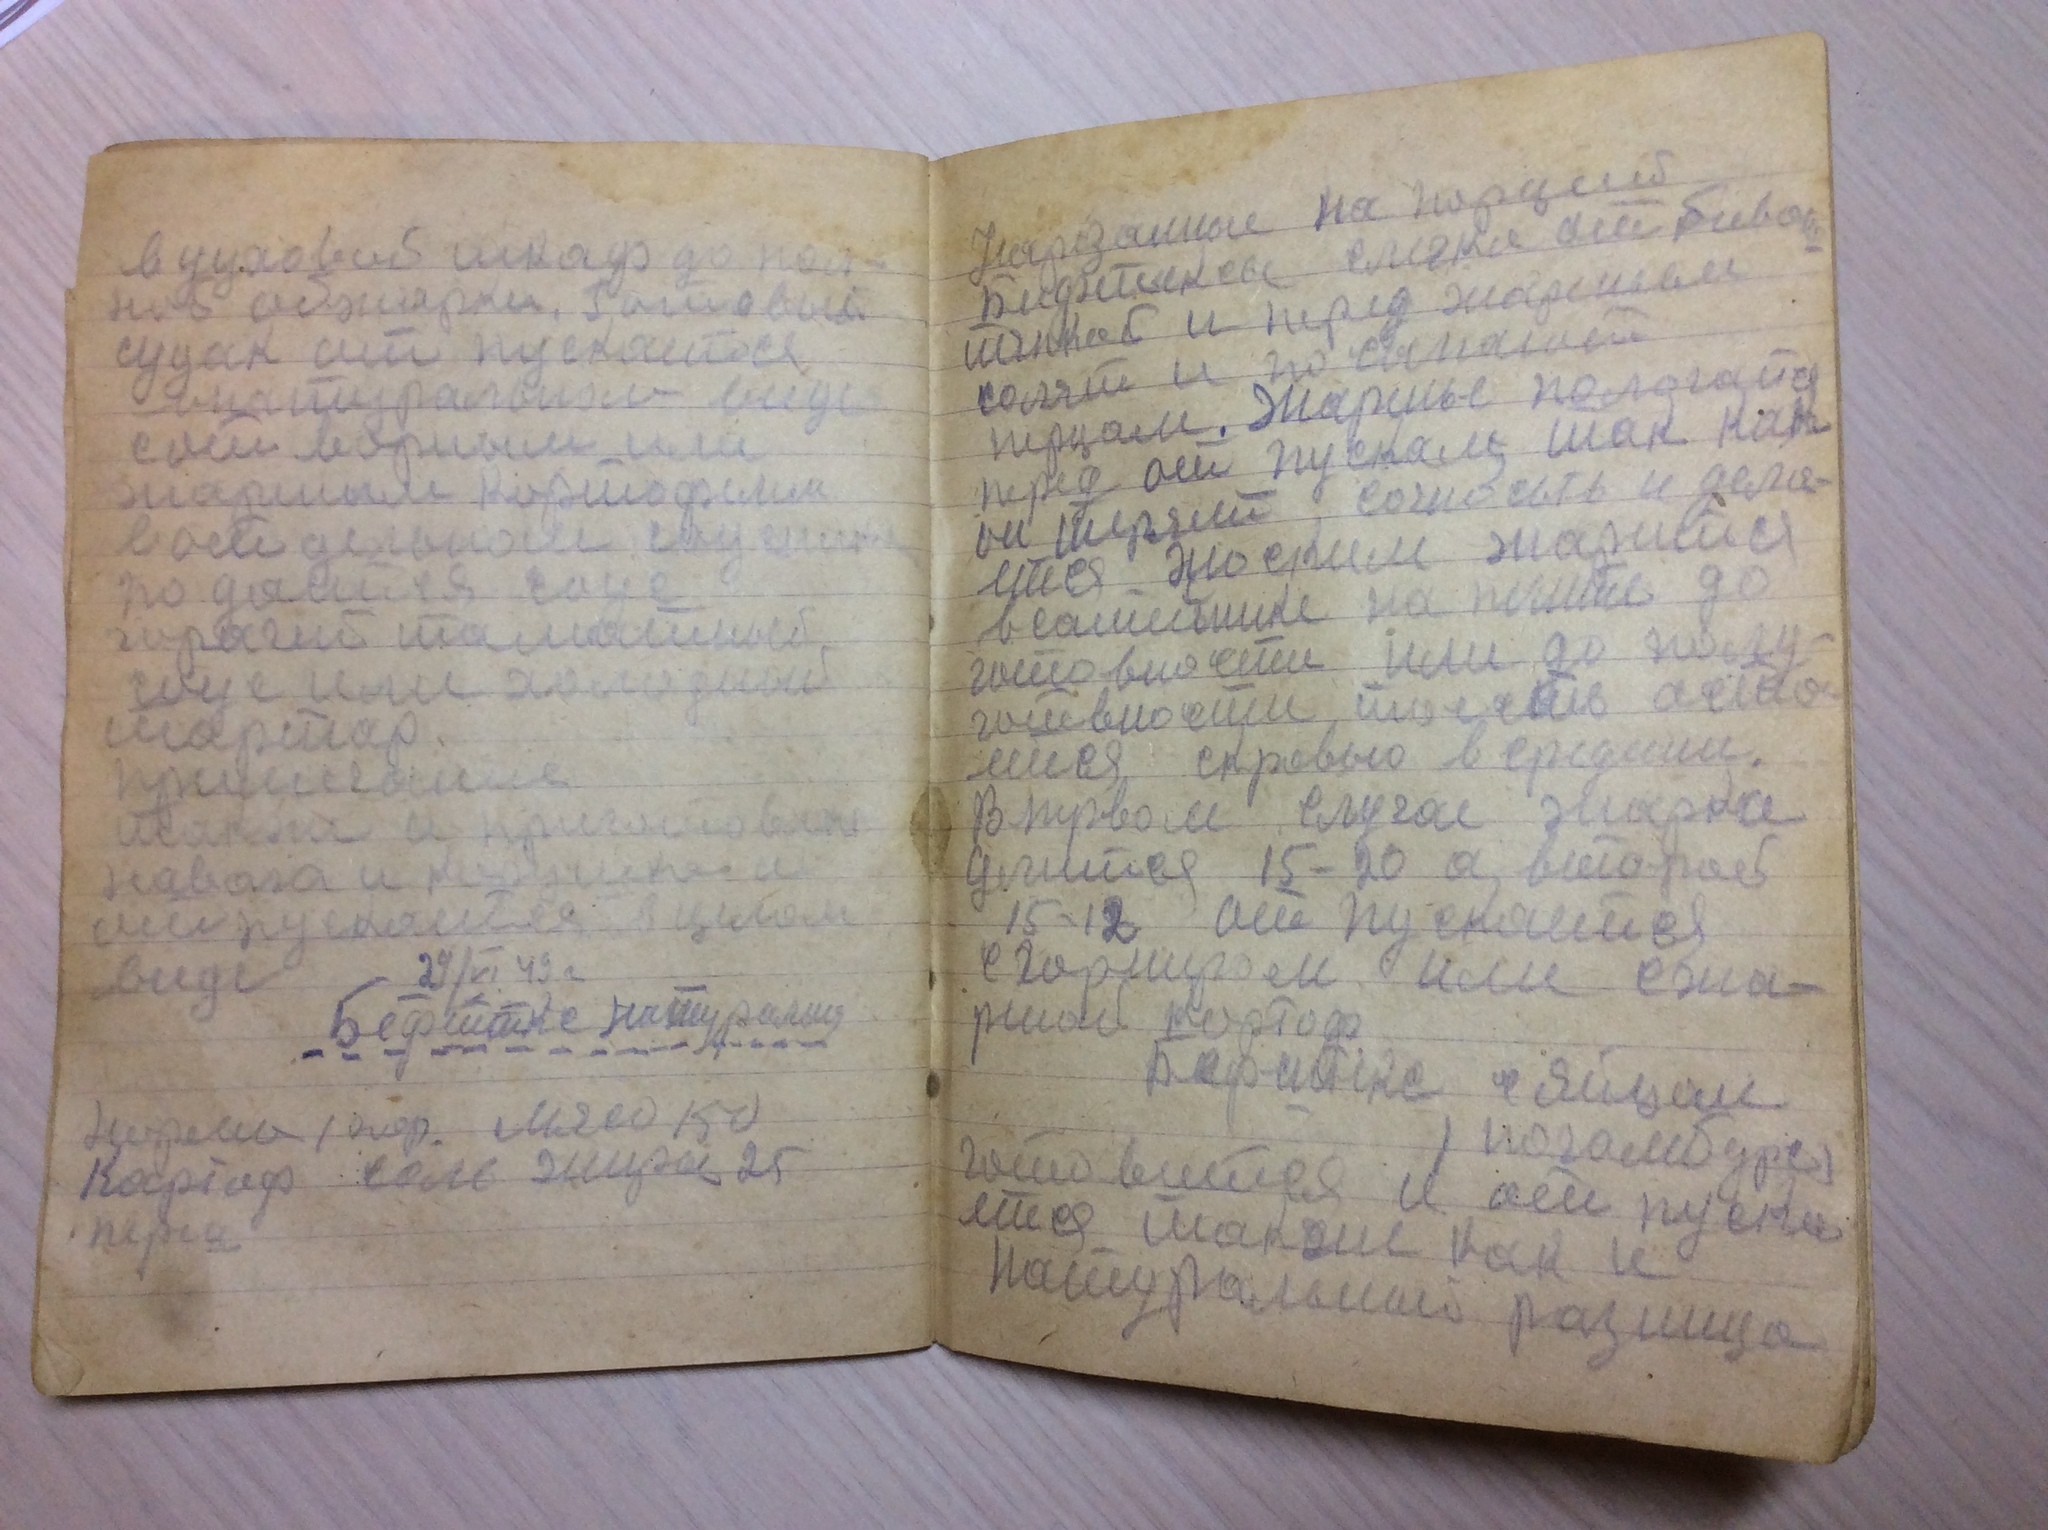 в духовой шкаф до пол-
ной обжарки. Готовый
судак отпускается
в натуральном виде
с отворным или
жарным картофелем
в отдельном соуснике
подается соус
горячий таматный
соус или холодный
тартар.
Примечание
также и приготовлен
навага и
отпускается в целом
виде
29/VI 49 г
Бефштекс натуральн
Норма 1 пор. Мясо 150
Картоф соль жира 25
перец
Нарезанные на порций
Бифштексы слегка отбивают
тяпкой и перед жареньем
солят и посыпают
перцам. Жаренье пологается
перед отпускам, так как
он теряет сочность и дела-
ется жоским жарится
в сатейнике на плите до
готовности или до полу-
готовности тоесть оста-
ется скровью в средини.
В первом случае жарка
длится 15-20 а второй
15-12 отпускается
с горниром или сжа-
рной картоф
Бефштекс с яйцам
(погамбурс)
готовится и отпуска
ется также как и
натуральный разница